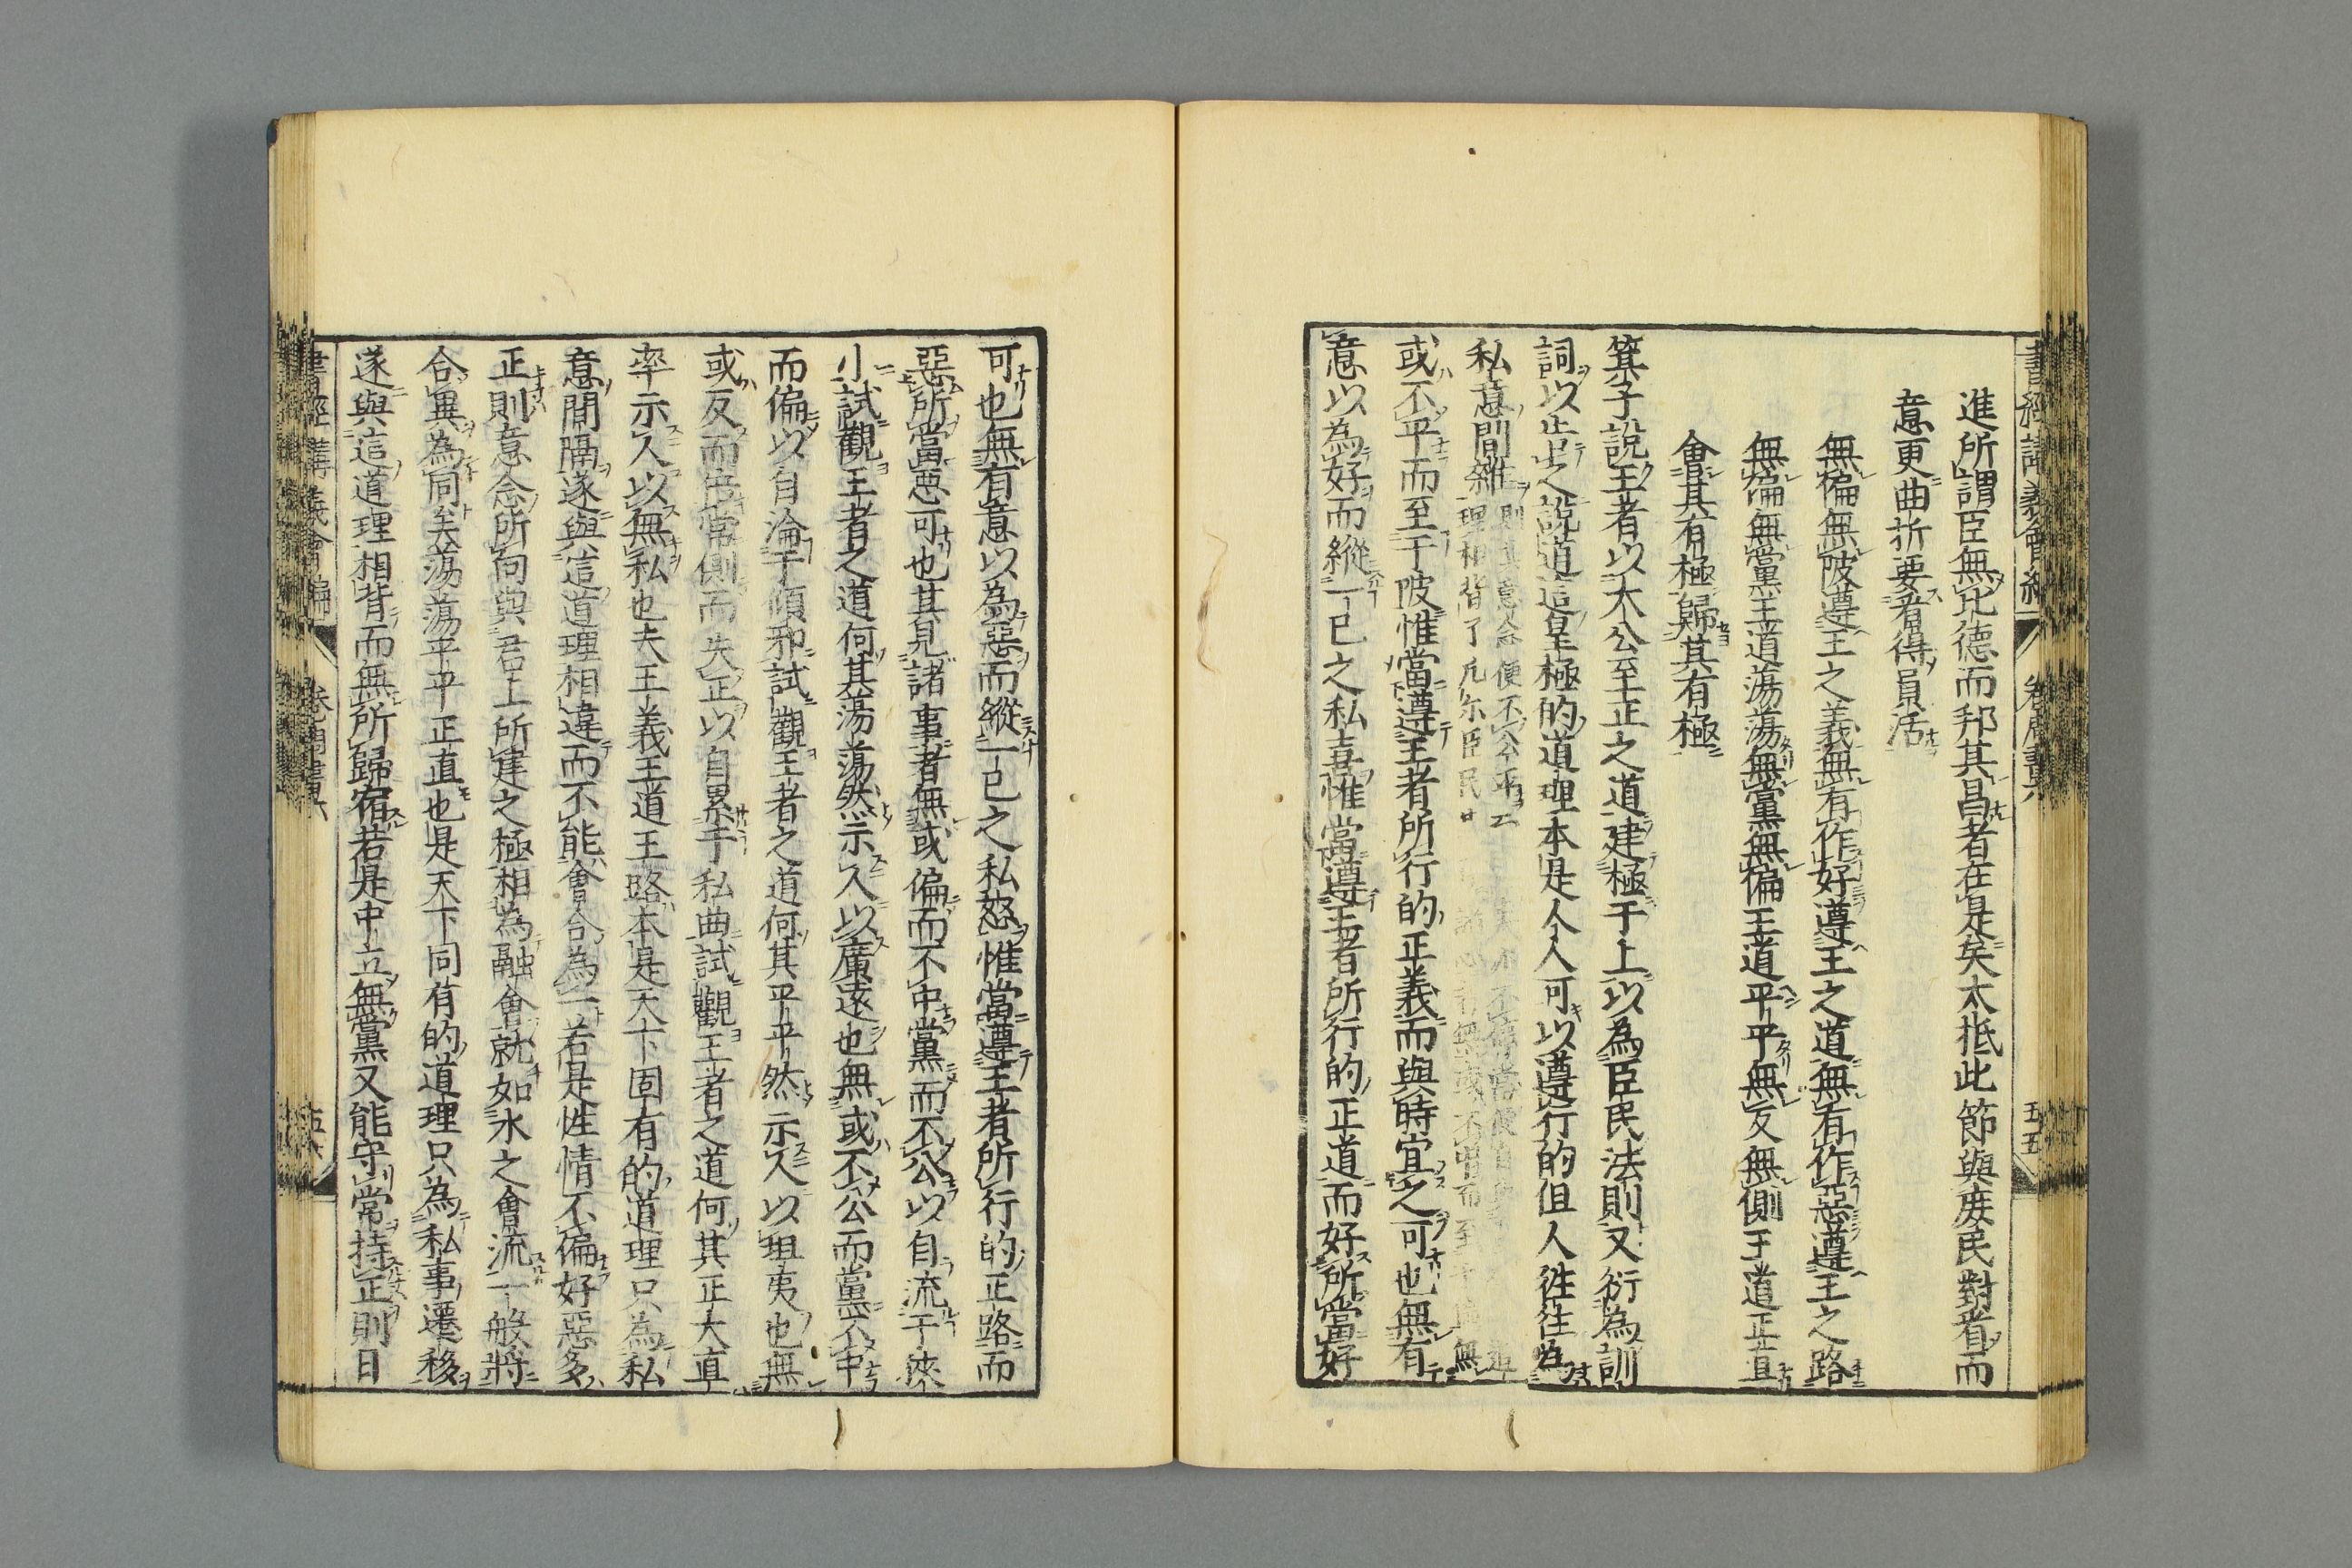 進所謂臣無比德而邦其昌者在是矣太抵此節與庶民對省而
意更曲折要者得員活
無偏無陂遵王之義無有作好遵王之道無有作惡遵王之路
無偏無黨王道蕩蕩無黨無偏王道平平無反無側王道正直
會其有極歸其有極
箕子說王者以大公至正之道建極于上以為臣民法則又衍為訓
詞以告之說道這皇極的道理本是人人可以遵行的但人徃徃為
私意間雜
則其意念便不公平
理相背了凡尓臣民
或不平而至于陂惟當遵王者所行的正義而與時宜之可也無有
意以為好而縱一己之私喜惟當遵王者所行的正道而好所當好
可也無有意以為惡而縱一己之私怒惟當遵王者所行的正路而
惡所當惡可也其見諸事者無或偏而不中黨而不公以自流于狹
小試觀王者之道何其蕩蕩然示人以廣遠也無或不公而黨不中
而偏以自淪于傾邪試觀王者之道何其平平然示人以坦夷也無
或反而倍常側而失正以自累于私曲試觀王者之道何其正大直
率示人以無私也夫王義王道王路本是天下固有的道理只為私
意間隔遂與這道理相違而不能會合為一若是性情不偏好惡多
正則意念所向與君上所建之極相為融會就如水之會流一般將
合異為同矣蕩蕩平平正直也是天下同有的道理只為私事遷移
遂與這道理相背而無所歸宿若是中立無黨又能守常持正則日
書經講義會編
卷周書六
五五